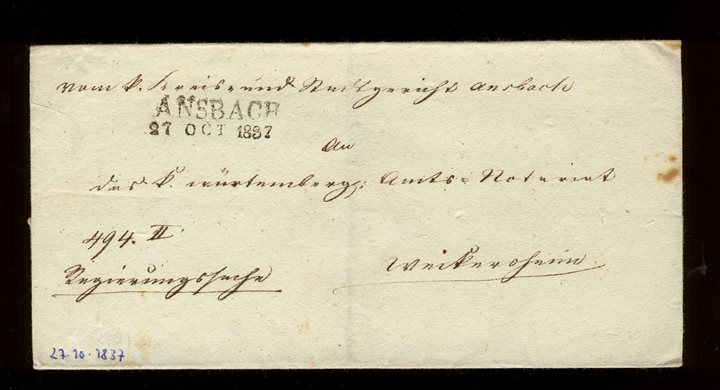 vom k. Kreis- und Stadtgericht Ansbach
ANSBACH
27 OCT 1837
An
das k. würtemberg. Amts-Notariat
494. II
Weikersheim
Regierungssache
27.10.1837